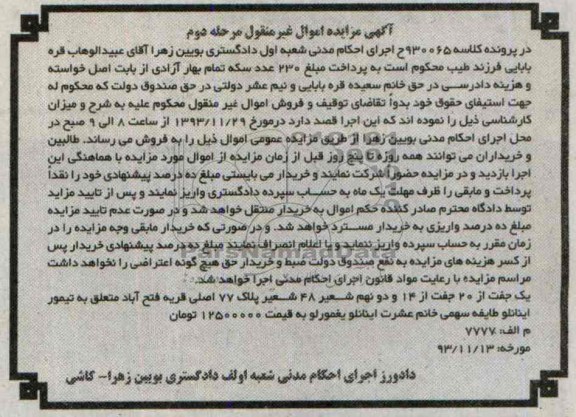 آگهی مزایده اموال غیرمنقول مرحله دوم
در پرونده کلاسه ۹۳۰۰۶۵ح اجرای احکام مدنی شعبه اول دادگستری بویین زهرا آقای عبیدالوهاب قره
بابایی فرزند طیب محکوم است به پرداخت مبلغ ۲۳۰ عدد سکه تمام بهار آزادی از بابت اصل خواسته
و هزینه دادرسی در حق خانم سعیده قره بابایی و نیم عشر دولتی در حق صندوق دولت که محکوم له
جهت استیفای حقوق خود بدوا تقاضای توقیف و فروش اموال غیر منقول محکوم علیه به شرح و میزان
کارشناسی ذیل را نموده اند که این اجرا قصد دارد درمورخ ۱۳۹۳/۱۱/۲۹ از ساعت ۸ الی ۹ صبح در
محل اجرای احکام مدنی بویین زهرا از طریق مزایده عمومی اموال ذیل را به فروش می رساند. طالبین
و خریداران می توانند همه روزه تا پنج روز قبل از زمان مزایده از اموال مورد مزایده با هماهنگی این
اجرا بازدید و در مزایده حضورا شرکت نمایند و خریدار می بایستی مبلغ ده درصد پیشنهادی خود را نقداً
پرداخت و مابقی را ظرف مهلت یک ماه به حساب سپرده دادگستری واریز نمایند و پس از تایید مزاید
توسط دادگاه محترم صادر کننده حکم اموال به خریدار منتقل خواهد شد و در صورت عدم تایید مزایده
مبلغ ده درصد واریزی به خریدار مسترد خواهد شد. و در صورتی که خریدار مابقی وجه مزایده را در
زمان مقرر به حساب سپرده واریز ننماید و یا اعلام انصراف نمایند مبلغ ده درصد پیشنهادی خریدار پس
از کسر هزینه های مزایده به نفع صندوق دولت ضبط و خریدار حق هیچ گونه اعتراضی را نخواهد داشت
مراسم مزایده با رعایت مواد قانون اجرای احکام مدنی اجرا خواهد شد.
یک جفت از ۲۰ جفت از ۱۴ و دو نهم شعیر ۴۸ شعیر پلاک ۷۷ اصلی قریه فتح آباد متعلق به تیمور
اینانلو طایفه سهمی خانم عشرت اینانلو یغمورلو به قیمت ۱۲۵۰۰۰۰۰ تومان
م الف: ۷۷۷۷
مورخه: ۹۳/۱۱/۱۳
دادورز اجرای احکام مدنی شعبه اولف دادگستری بویین زهرا- کاشی